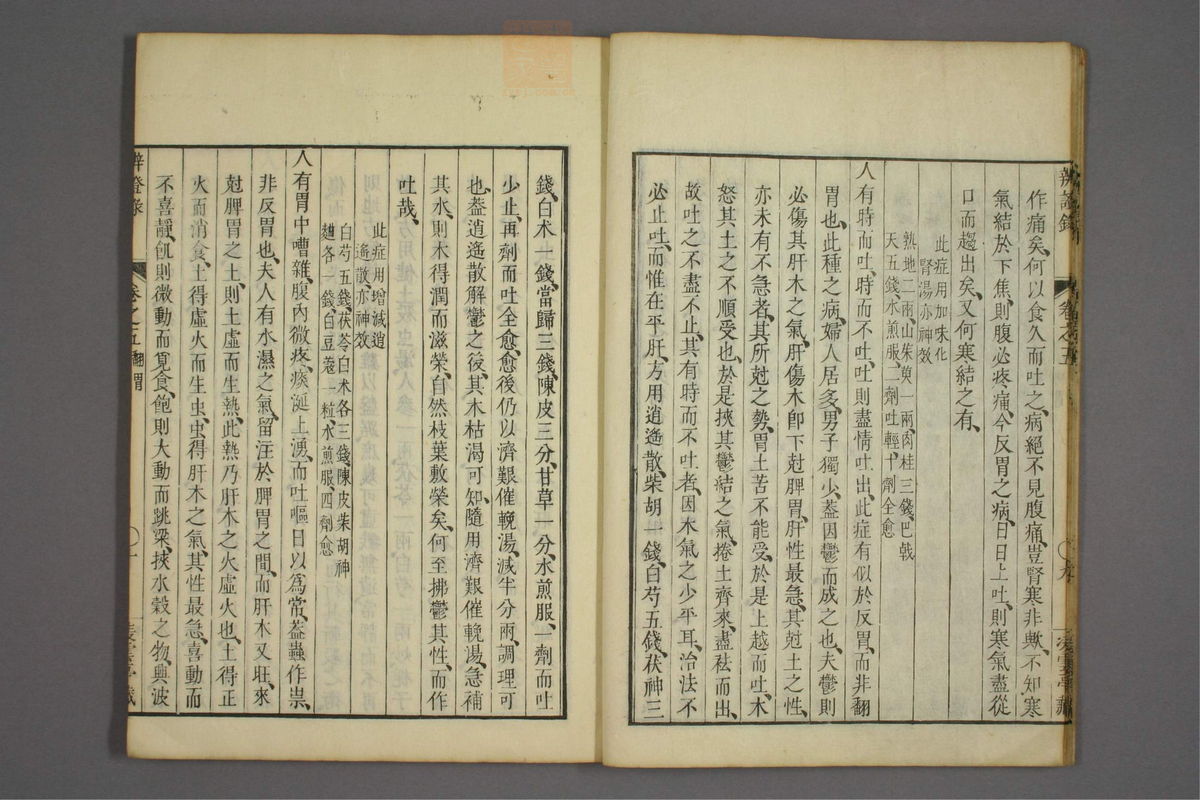 作痛矣、何以食久而吐之、病絕不見腹痛、豈腎寒非歟、不知寒
氣結於下焦、則腹必疼痛、今反胃之病、日日上吐、則寒氣盡從
口而趨出矣、又何寒結之有、
熟地二兩、山茱萸一兩、肉桂三錢、巴戟
天五錢、水煎服、二劑吐輕、十劑全愈
此症用加味化
腎湯亦神效
人有時而吐、時而不吐、吐則盡情吐出、此症有似於反胃、而非翻
胃也、此種之病、婦人居多、男子獨少、蓋因鬱而成之也、夫鬱則
必傷其肝木之氣、肝傷木卽下尅脾胃、肝性最急、其尅土之性、
亦未有不急者、其所尅之勢、胃土苦不能受、於是上越而吐、木
怒其土之不順受也、於是挾其鬱結之氣、捲土齊來、盡祛而出、
故吐之不盡不止、其有時而不吐者、因木氣之少平耳、治法不
必止吐、而惟在平肝、方用逍遙散、柴胡一錢、白芍五錢、茯神三
辨證錄 卷之五
錢、白术一錢、當歸三錢、陳皮三分、甘草一分、水煎服、一劑而吐
少止、再劑而吐全愈、愈後仍以濟艱催輓湯、減半分兩、調理可
也、蓋逍遙散解鬱之後、其木枯渴可知、隨用濟艱催輓湯、急補
其水、則木得潤而滋榮、自然枝葉敷榮矣、何至拂鬱其性、而作
吐哉、
此症用增減逍
遙散亦神效
白芍五錢、茯苓白术各三錢、陳皮柴胡神
麯各一錢、白豆蔻一粒、水煎服、四劑愈
人有胃中嘈雜、腹內微疼、痰涎上湧、而吐嘔日以為常、蓋蟲作祟、
非反胃也、夫人有水濕之氣、留注於脾胃之間、而肝木又旺、來
尅脾胃之土、則土虛而生熱、此熱乃肝木之火虛火也、土得正
火而消食、土得虛火而生虫、虫得肝木之氣、其性最急、喜動而
不喜靜、飢則微動而覓食、飽則大動而跳梁、挾水穀之物、興波
辨證錄 卷之五 翻胃